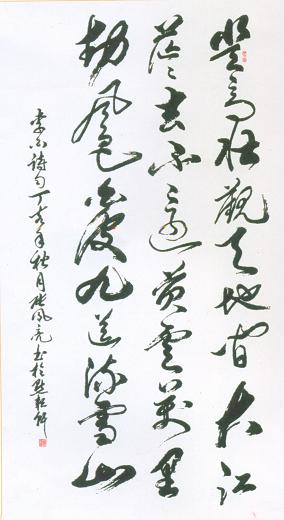 登高壮觀天地間大江
茫茫去不還黄雲萬里
動風色白波九道流雪山
李白詩句丁亥年秋月张風亮书於